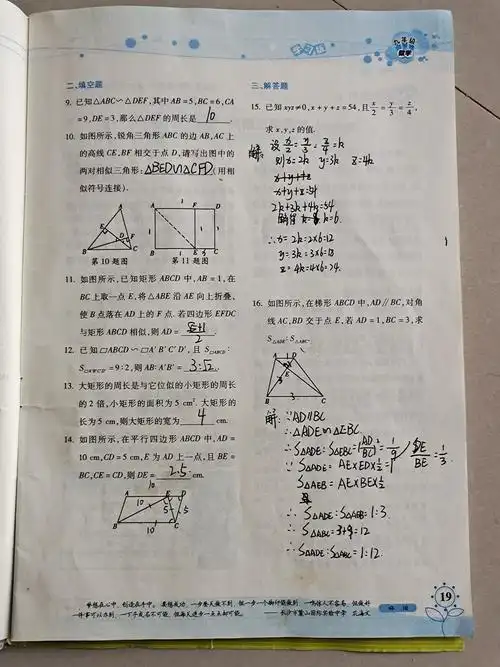 九年级
数学
二、填空题
9. 已知△ABC∽△DEF,其中 AB=5,BC=6,CA
=9,DE=3,那么△DEF 的周长是 10 .
10. 如图所示,锐角三角形 ABC 的边 AB,AC 上
的高线 CE,BF 相交于点 D,请写出图中的
两对相似三角形: △BED∽△CFD (用相
似符号连接).
第 10 题图 第 11 题图
11. 如图所示,已知矩形 ABCD 中,AB=1,在
BC 上取一点 E,将△ABE 沿 AE 向上折叠,
使 B 点落在 AD 上的 F 点.若四边形 EFDC
与矩形 ABCD 相似,则 AD= (√5+1)/2
12. 已知▱ABCD∽▱A′B′C′D′,且 S▱ABCD:
S▱A′B′C′D′=9:2,则 AB:A′B′= 3:√2 .
13. 大矩形的周长是与它位似的小矩形的周长
的 2 倍,小矩形的面积为 5 cm²,大矩形的
长为 5 cm,则大矩形的宽为 4 cm.
14. 如图所示,在平行四边形 ABCD 中,AD=
10 cm,CD=5 cm,E 为 AD 上一点,且 BE=
BC,CE=CD,则 DE= 2.5 cm.
三、解答题
15. 已知 xyz≠0,x+y+z=54,且 x/2=y/3=z/4,
求 x,y,z 的值.
解: 设 x/2=y/3=z/4=k
则 x=2k y=3k z=4k
x+y+z
x+y+z=54
2k+3k+4k=54
解得 k=6.
∴x=2k=2×6=12
y=3k=3×6=18
z=4k=4×6=24.
16. 如图所示,在梯形 ABCD 中,AD∥BC,对角
线 AC,BD 交于点 E,若 AD=1,BC=3,求
S△ADE:S△ABC.
解: ∵AD∥BC
∴△ADE∽△EBC
∴S△ADE:S△EBC=(AD/BC)²=1/9 DE/BE=1/3
∵S△ADE=AE×ED×1/2=1
S△AEB=AE×BE×1/2
∴S△ADE:S△AEB=1:3.
∴S△ABC=3+9=12
∴S△ADE:S△ABC=1:12.
19